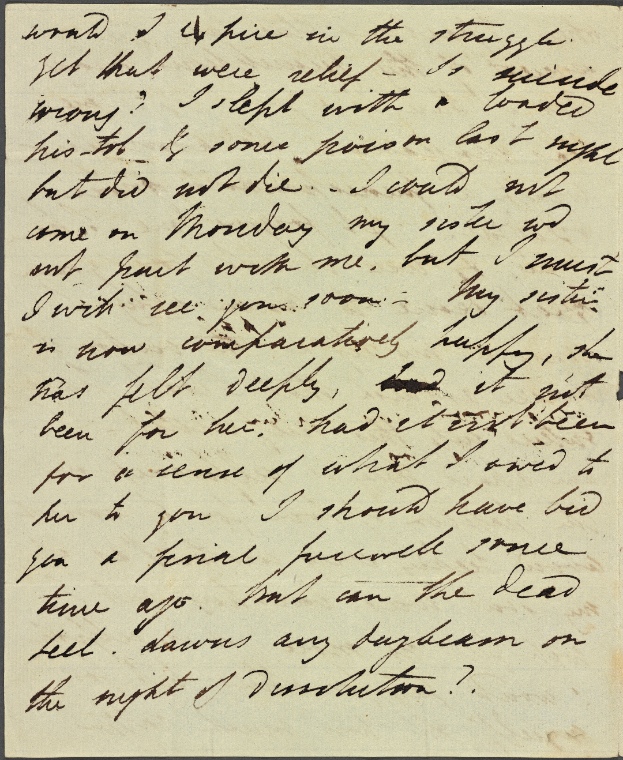 would I expire in the struggle.
Yet that were relief - Is suicide
wrong? I slept with a loaded
pistol & some poison last night
but did not die - I could not
come on Monday my sister wd
not part with me. but I must
I will see you soon - My sister
is now comparatively happy, she
has felt deeply, it not
been for her. had it not been
for a sense of what I owed to
her to you I should have bid
you a final farewell some
time ago. but can the dead
feel. dawns any daybeam on
the night of dissolution?.